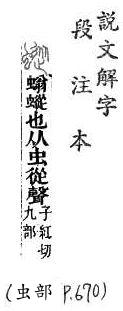 說文解字
段注本
螉䗥也从虫從聲
子紅切
九部
(虫部 P.670)